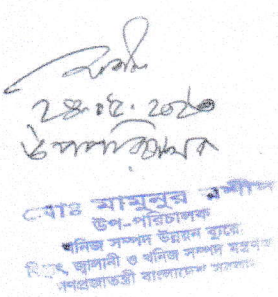 ২৪.০৫.২০২০
উপপরিচালক
মোঃ মামুনুর রশীদ
উপ-পরিচালক
খনিজ সম্পদ উন্নয়ন ব্যুরো
বিদ্যুৎ, জ্বালানী ও খনিজ সম্পদ মন্ত্রণালয়
গণপ্রজাতন্ত্রী বাংলাদেশ সরকার